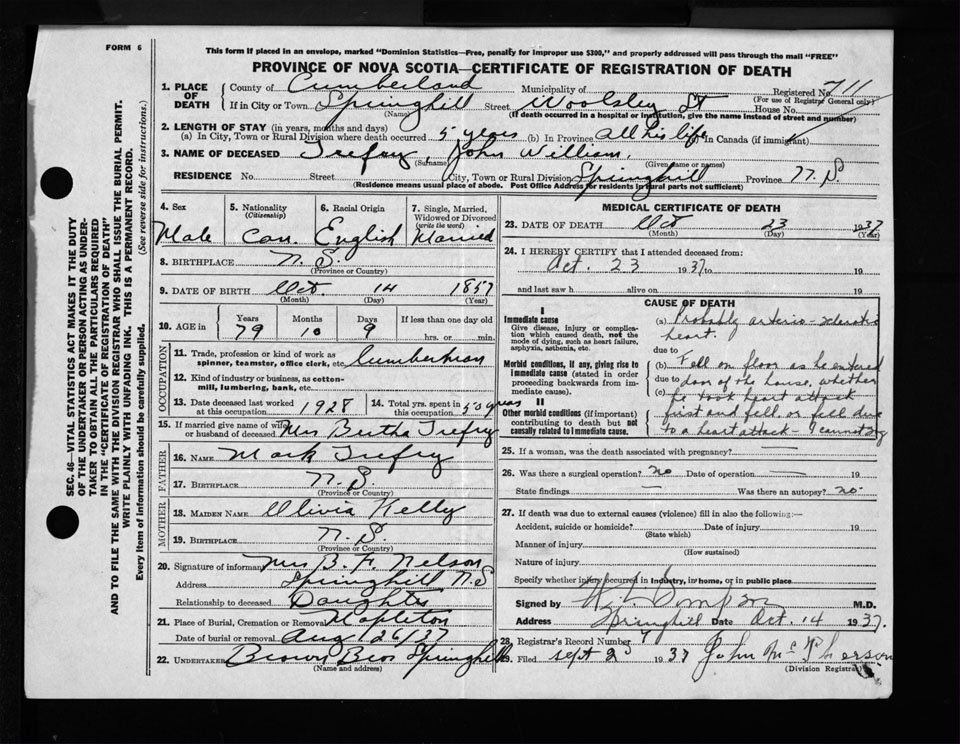 FORM 6
This form if placed in an envelope, marked "Dominion Statistics—Free, penalty for improper use $300," and properly addressed will pass through the mail "FREE"
PROVINCE OF NOVA SCOTIA—CERTIFICATE OF REGISTRATION OF DEATH
1. PLACE OF DEATH
County of Cumberland Municipality of Registered No. 711
(For use of Registrar General only)
If in City or Town Springhill Street Woolsley St House No.
(Name) (If death occurred in a hospital or institution, give the name instead of street and number)
2. LENGTH OF STAY (in years, months and days)
(a) In City, Town or Rural Division where death occurred 5 years (b) In Province All his life In Canada (if immigrant)
3. NAME OF DECEASED Trefry, John William,
(Surname) (Given name or names)
RESIDENCE No. Street City, Town or Rural Division Springhill Province N. S
(Residence means usual place of abode. Post Office Address for residents in rural parts not sufficient)
4. Sex Male
5. Nationality (Citizenship) Can.
6. Racial Origin English
7. Single, Married, Widowed or Divorced (write the word) Married
8. BIRTHPLACE N. S.
(Province or Country)
9. DATE OF BIRTH Oct. 14 1857
(Month) (Day) (Year)
10. AGE in Years 79 Months 10 Days 9 If less than one day old hrs. or min.
OCCUPATION
11. Trade, profession or kind of work as spinner, teamster, office clerk, etc. Lumberman
12. Kind of industry or business, as cotton-mill, lumbering, bank, etc.
13. Date deceased last worked at this occupation 1928
14. Total yrs. spent in this occupation 50 years
15. If married give name of wife or husband of deceased Mrs Bertha Trefry
FATHER
16. NAME Mark Trefry
17. BIRTHPLACE N. S.
(Province or Country)
MOTHER
18. MAIDEN NAME Olivia Kelly
19. BIRTHPLACE N. S.
(Province or Country)
20. Signature of informant Mrs B. F. Nelson
Address Springhill N.S
Relationship to deceased Daughter
21. Place of Burial, Cremation or Removal Mapleton
Date of burial or removal Aug 26/37
22. UNDERTAKER Brown Bros Springhill
(Name and address)
MEDICAL CERTIFICATE OF DEATH
23. DATE OF DEATH Oct 23 1937
(Month) (Day) (Year)
24. I HEREBY CERTIFY that I attended deceased from:
Oct. 23 1937 to 19
and last saw h alive on 19
CAUSE OF DEATH
I
Immediate cause
Give disease, injury or complication which caused death, not the mode of dying, such as heart failure, asphyxia, asthenia, etc.
Morbid conditions, if any, giving rise to immediate cause (stated in order proceeding backwards from immediate cause).
II
Other morbid conditions (if important) contributing to death but not causally related to immediate cause.
(a) Probably arterio-sclerotic
heart.
due to
(b) Fell on floor as he entered
due to door of the house, whether
(c) he took heart attack
first and fell or fell due
to a heart attack - I cannot say
25. If a woman, was the death associated with pregnancy?
26. Was there a surgical operation? no Date of operation 19
State findings Was there an autopsy? no
27. If death was due to external causes (violence) fill in also the following:—
Accident, suicide or homicide? Date of injury 19
(State which)
Manner of injury
(How sustained)
Nature of injury
Specify whether injury occurred in industry, in home, or in public place
Signed by M.D.
Address Springhill Date Oct. 14 1937.
28. Registrar's Record Number 71
29. Filed Sept 2 1937 John McPherson
(Division Registrar)
SEC. 46—VITAL STATISTICS ACT MAKES IT THE DUTY
OF THE UNDERTAKER OR PERSON ACTING AS UNDER-
TAKER TO OBTAIN ALL THE PARTICULARS REQUIRED
IN THE "CERTIFICATE OF REGISTRATION OF DEATH"
AND TO FILE THE SAME WITH THE DIVISION REGISTRAR WHO SHALL ISSUE THE BURIAL PERMIT.
WRITE PLAINLY WITH UNFADING INK. THIS IS A PERMANENT RECORD.
Every item of information should be carefully supplied. (See reverse side for instructions.)